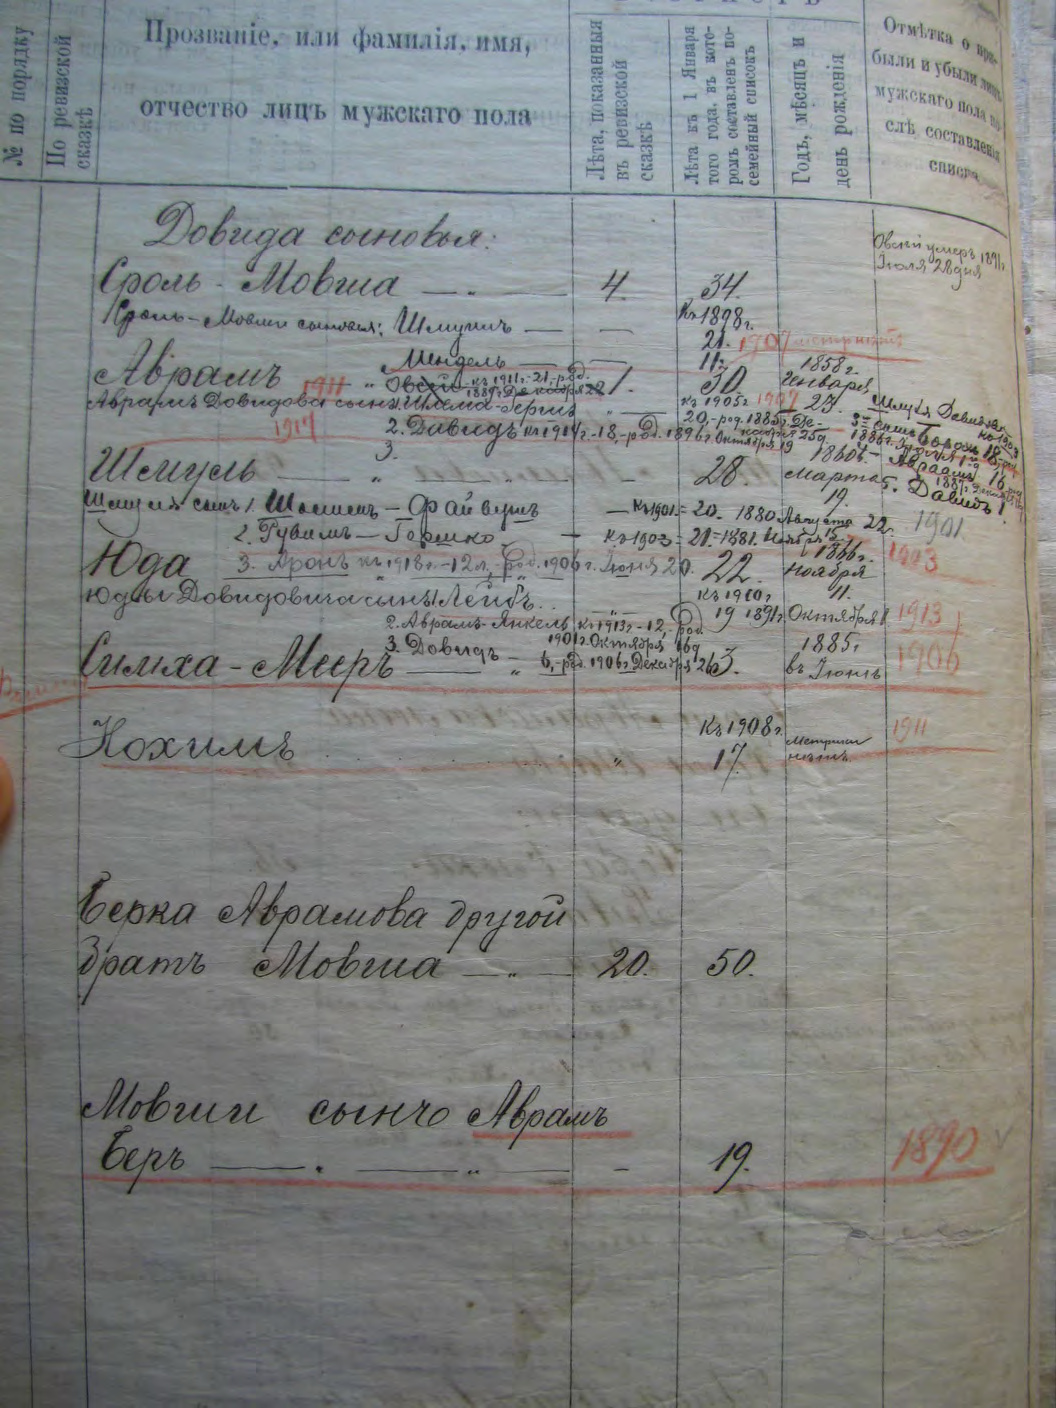 № по порядку
По ревизской сказкѣ
Прозваніе, или фамилія, имя,
отчество лицъ мужскаго пола
Лѣта, показанныя въ ревизской сказкѣ
Лѣта къ 1 Января того года, въ которомъ составленъ посемейный списокъ
Годъ, мѣсяцъ и день рожденія
Отмѣтка о прибыли и убыли лицъ мужскаго пола послѣ составленія списка
Довида сыновья:
Овсей умеръ 1891 г. Іюля 28 дня
Сроль - Мовша 4. 34.
Сроль-Мовши сыновья: Шмуилъ Къ 1898 г. 21. 1907
Мендель 11.
Аврамъ 1. 30. 1858 г. Января, 27.
1911 Овсей къ 1911 г. 21,-род. 1889 г. Декабря 22
Аврамъ Довидова сынъ 1. Шлема-Герцъ къ 1905 г. 1907
20,-род. 1885 г.
1917 2. Давидъ къ 1914 г. - 18,-род. 1896 г. Октября 19
3.
Шмуль 28. 1860 г. Марта 19.
Шмуля сынъ 1. Шолемъ - Файвушъ къ 1901 = 20. 1880 Августа 22. 1901
2. Рувимъ - Гершко къ 1903 = 21. 1881. Ноября 15 1903
Юда 22. 1866 г. Ноября 11.
3. Аронъ къ 1918 г. - 12 л, - род. 1906 г. Іюня 20.
Юды Довидовича сынъ 1. Лейбъ къ 1910 г. 19 1891 г. Октября 1913
2. Аврамъ-Янкель къ 1913 г. - 12,- род. 1901 г. Октября 16 д
3. Довидъ - 6,-род. 1906 г. Декабря 26
Симха - Мееръ 3. 1885 г. въ Іюнѣ 1906
Нохимъ Къ 1908 г. 17. Метрики нѣтъ 1911
Берка Аврамова другой
братъ Мовша 20. 50.
Мовши сынъ Аврамъ
Беръ 19. 1890